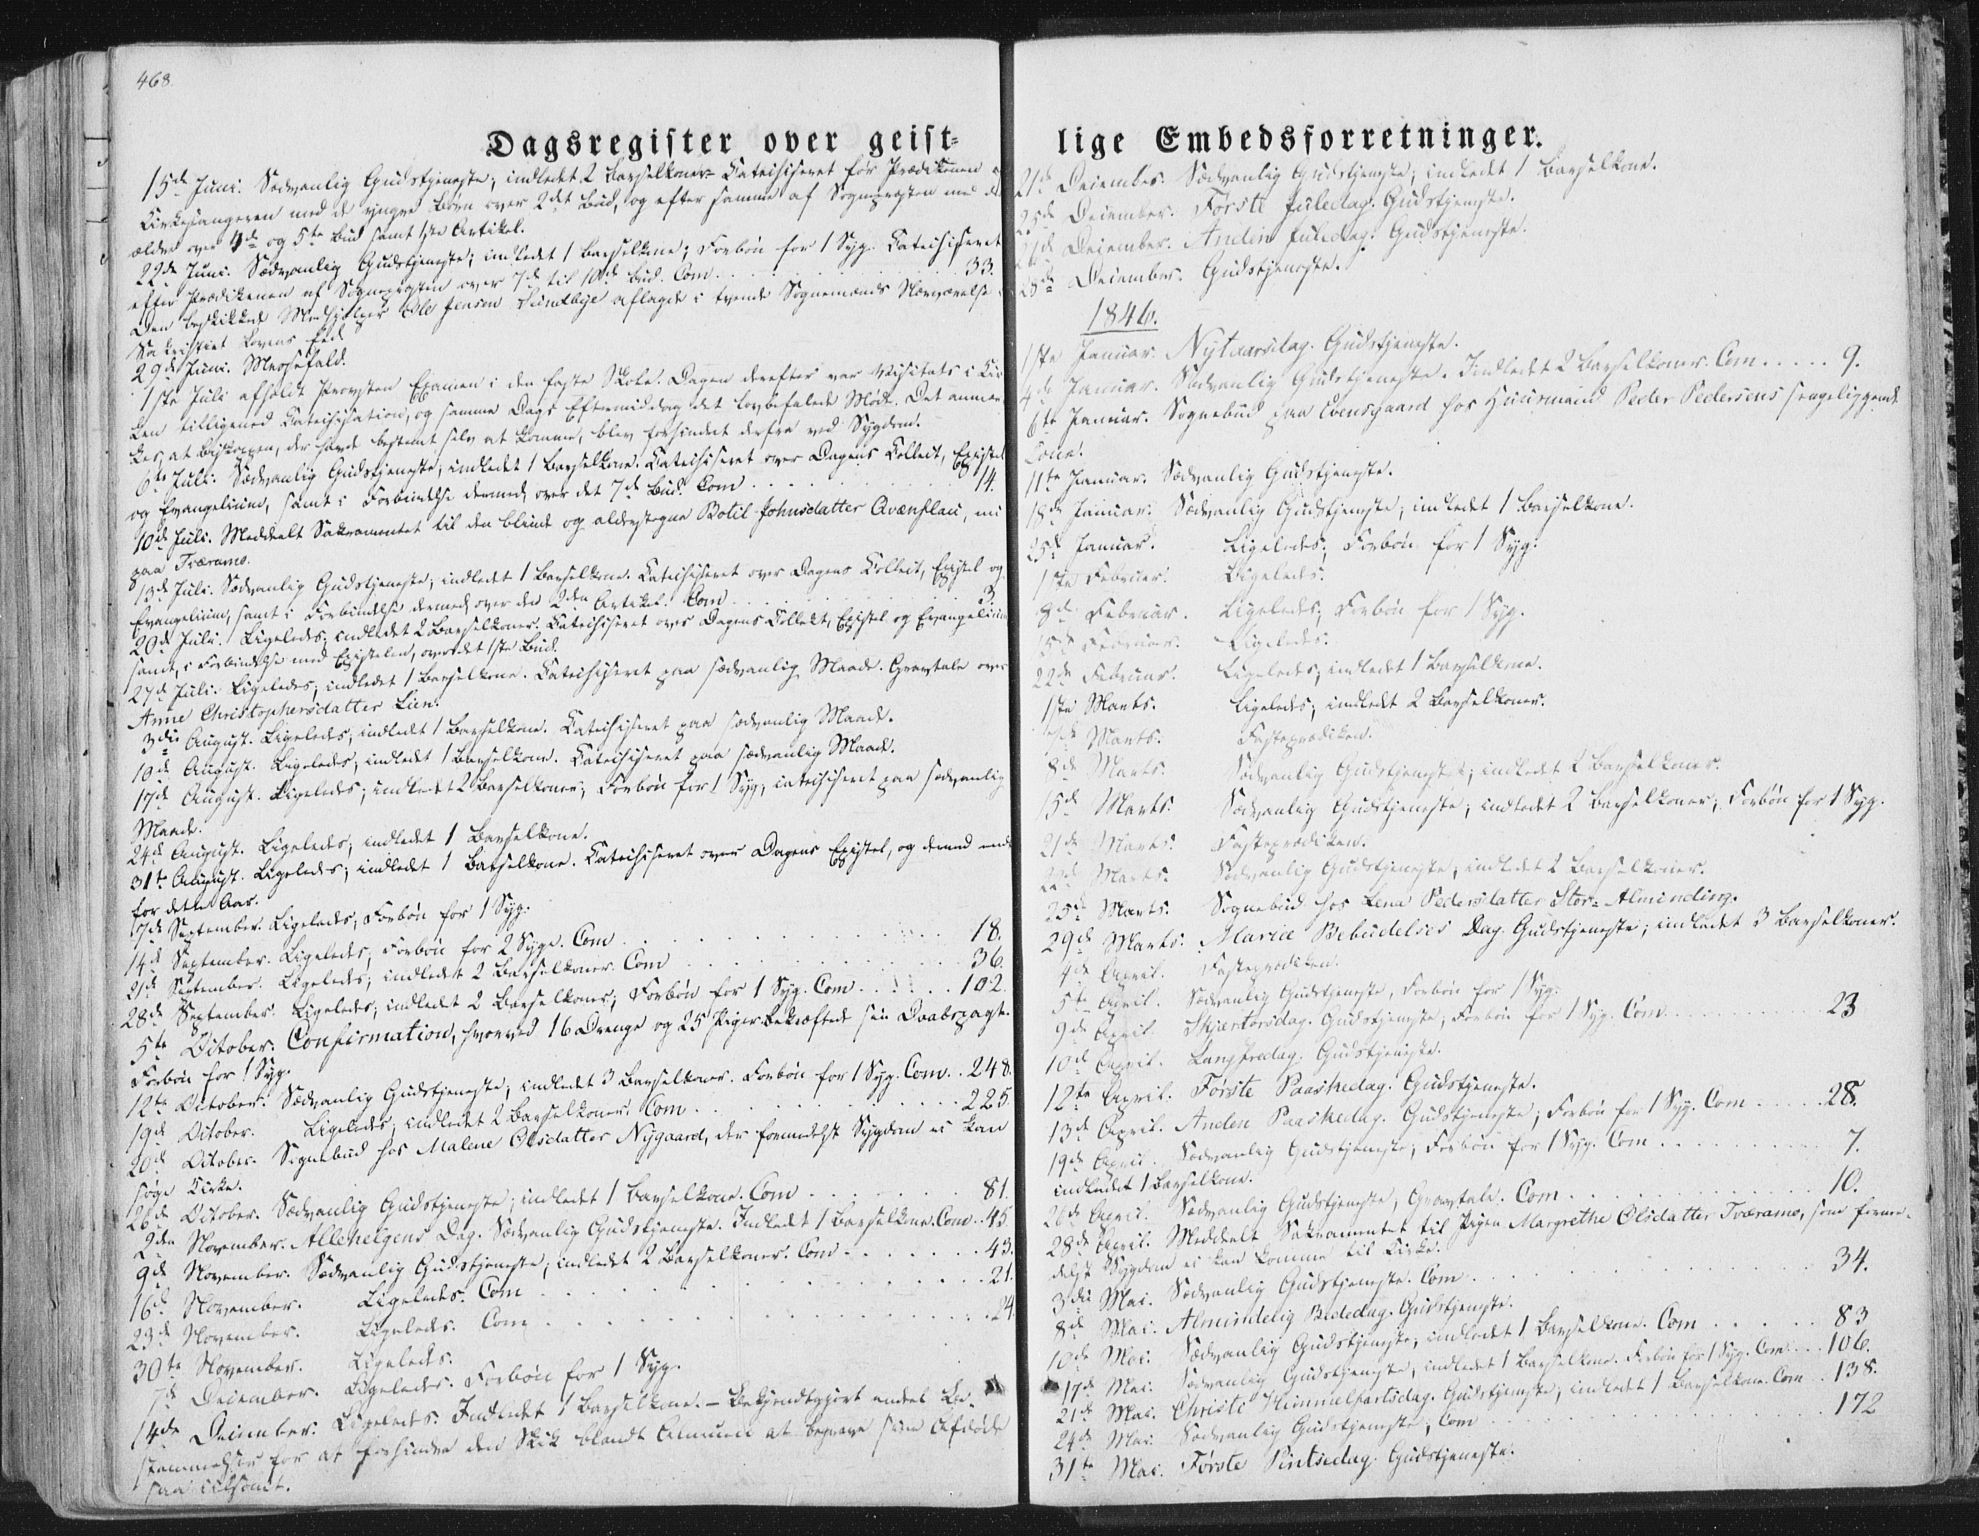 468.
Dagsregister over geist-
15de Juni. Sædvanlig Gudstjeneste; indledet 2 Barselkoner. Katechiseret før Prædikenen
Kirkesangeren med de yngre Børn over 2det Bud, og efter samme af Sognepresten med de
ældre over 4de og 5te Bud samt 1ste Artikel.
22de Juni. Sædvanlig Gudstjeneste; indledet 1 Barselkone; Forbøn for 1 Syg. Katechiseret
efter Prædikenen af Sognepresten over 7de til 10de Bud. Com . . . . 33.
Den beskikkede Medhjælper Ole Jensen aflagde i tvende Sognemænds Nærværelse i
Sakristiet Lovens Eed.
29de Juni. Messefald.
1ste Juli afholdt Provsten Examen i den faste Skole. Dagen derefter var Visitats i Kir-
ken tilligemed Katechisation, og samme Dags Eftermiddag det lovbefalede Møde. Det anmær-
kes, at Biskoppen, der havde bestemt selv at komme, blev forhindret derfra ved Sygdom.
6te Juli. Sædvanlig Gudstjeneste; indledet 1 Barselkone. Katechiseret over Dagens Collect, Epistel
og Evangelium, samt i Forbindelse dermed over det 7de Bud. Com . . . . 14.
10de Juli. Meddeelt Sakramentet til den blinde og alderstegne Botil Johnsdatter Qvænflaei, nu
paa Træramo.
13de Juli. Sædvanlig Gudstjeneste; indledet 1 Barselkone. Katechiseret over Dagens Collect, Epistel og
Evangelium, samt i Forbindelse dermed over den 2den Artikel. Com . . . . 3.
20de Juli. Ligeledes; indledet 2 Barselkoner. Katechiseret over Dagens Collect, Epistel og Evangelium
samt, i Forbindelse med Epistelen, over det 1ste Bud.
27de Juli. Ligeledes; indledet 1 Barselkone. Katechiseret paa sædvanlig Maade. Gravtale over
Anne Christophersdatter Lien.
3die August. Ligeledes; indledet 1 Barselkone. Katechiseret paa sædvanlig Maade.
10de August. Ligeledes; indledet 1 Barselkone. Katechiseret paa sædvanlig Maade.
17de August. Ligeledes; indledet 2 Barselkoner; Forbøn for 1 Syg, catechiseret paa sædvanlig
Maade.
24de August. Ligeledes; indledet 1 Barselkone.
31te August. Ligeledes; indledet 1 Barselkone. Katechiseret over Dagens Epistel, og dermed endt
for dette Aar.
7de September. Ligeledes; Forbøn for 1 Syg.
14de September. Ligeledes; Forbøn for 2 Syge. Com . . . . 18.
21de September. Ligeledes; indledet 2 Barselkoner. Com . . . . 36.
28de September. Ligeledes; indledet 2 Barselkoner; Forbøn for 1 Syg. Com . . . . 102.
5te October. Confirmation, hvorved 16 Drenge og 25 Piger bekræftede sin Daabspagt.
Forbøn for 1 Syg.
12te October. Sædvanlig Gudstjeneste; indledet 3 Barselkoner. Forbøn for 1 Syg. Com. . 248.
19de October. Ligeledes; indledet 2 Barselkoner. Com . . . . 225
20de October. Sognebud hos Malene Olsdatter Nygaard, der formedelst Sygdom ei kan
søge Kirke.
26de October. Sædvanlig Gudstjeneste; indledet 1 Barselkone. Com . . . . 81.
2den November. Allehelgens Dag. Sædvanlig Gudstjeneste. Indledt 1 Barselkone. Com . . 45
9de November. Sædvanlig Gudstjeneste; indledet 2 Barselkoner. Com . . . . 43.
16de November. Ligeledes. Com . . . . 21.
23de November. Ligeledes. Com . . . . 24
30te November. Ligeledes.
7de December. Ligeledes. Forbøn for 1 Syg.
14de December. Ligeledes. Indledet 1 Barselkone. – Bekjendtgjort endeel Be-
stemmelser for at forhindre den Skik blandt Almuen at begrave sine Afdøde
saa ##.
lige Embedsforretninger.
21de December. Sædvanlig Gudstjeneste; indledet 1 Barselkone.
25de December. Første Juledag. Gudstjeneste.
26de December. Anden Juledag. Gudstjeneste.
28de December. Gudstjeneste.
1846.
1ste Januar. Nytaarsdag. Gudstjeneste.
4de Januar. Sædvanlig Gudstjeneste. Indledet 2 Barselkoner. Com . . . . 9.
6te Januar. Sognebud paa Evensgaard hos Huusmand Peder Pedersens sengeliggende
Kone.
11te Januar. Sædvanlig Gudstjeneste.
18de Januar. Sædvanlig Gudstjeneste; indledet 1 Barselkone.
25de Januar. Ligeledes; Forbøn for 1 Syg.
1ste Februar. Ligeledes.
8de Februar. Ligeledes; Forbøn for 1 Syg.
15de Februar. Ligeledes.
22de Februar. Ligeledes; indledet 1 Barselkone.
1ste Marts. Ligeledes; indledet 2 Barselkoner.
7de Marts. Fasteprædiken.
8de Marts. Sædvanlig Gudstjeneste; indledet 2 Barselkoner.
15de Marts. Sædvanlig Gudstjeneste; indledet 2 Barselkoner; Forbøn for 1 Syg.
21de Marts. Fasteprædiken.
22de Marts. Sædvanlig Gudstjeneste; indledet 2 Barselkoner.
25de Marts. Sognebud hos Lena Pedersdatter Stor-Alminding.
29de Marts. Mariæ Bebudelses Dag. Gudstjeneste; indledet 3 Barselkoner.
4de April. Fasteprædiken.
5te April. Sædvanlig Gudstjeneste, Forbøn for 1 Syg.
9de April. Skjærtorsdag. Gudstjeneste, Forbøn for 1 Syg. Com . . . . 23
10de April. Langfredag. Gudstjeneste.
12te April. Første Paaskedag. Gudstjeneste.
13de April. Anden Paaskedag. Gudstjeneste; Forbøn for 1 Syg. Com . . . . 28.
19de April. Sædvanlig Gudstjeneste; Forbøn for 1 Syg. Com . . . . 7.
indledet 1 Barselkone.
26de April. Sædvanlig Gudstjeneste, Gravtale. Com . . . . 10.
28de April. Meddeelt Sakramentet til Pigen Margrethe Olsdatter Træramo, som forme-
delst Sygdom ei kan komme til Kirke.
3die Mai. Sædvanlig Gudstjeneste. Com . . . . 34.
8de Mai. Almindelig Bededag. Gudstjeneste.
10de Mai. Sædvanlig Gudstjeneste; indledet 1 Barselkone. Com . . . . 83
17de Mai. Sædvanlig Gudstjeneste, indledet 1 Barselkone. Forbøn for 1 Syg. Com . . . 106.
21de Mai. Christi Himmelfartsdag. Gudstjeneste, indledet 1 Barselkone. Com . . 138.
24de Mai. Sædvanlig Gudstjeneste, Com . . . . 172
31te Mai. Første Pintsedag. Gudstjeneste.